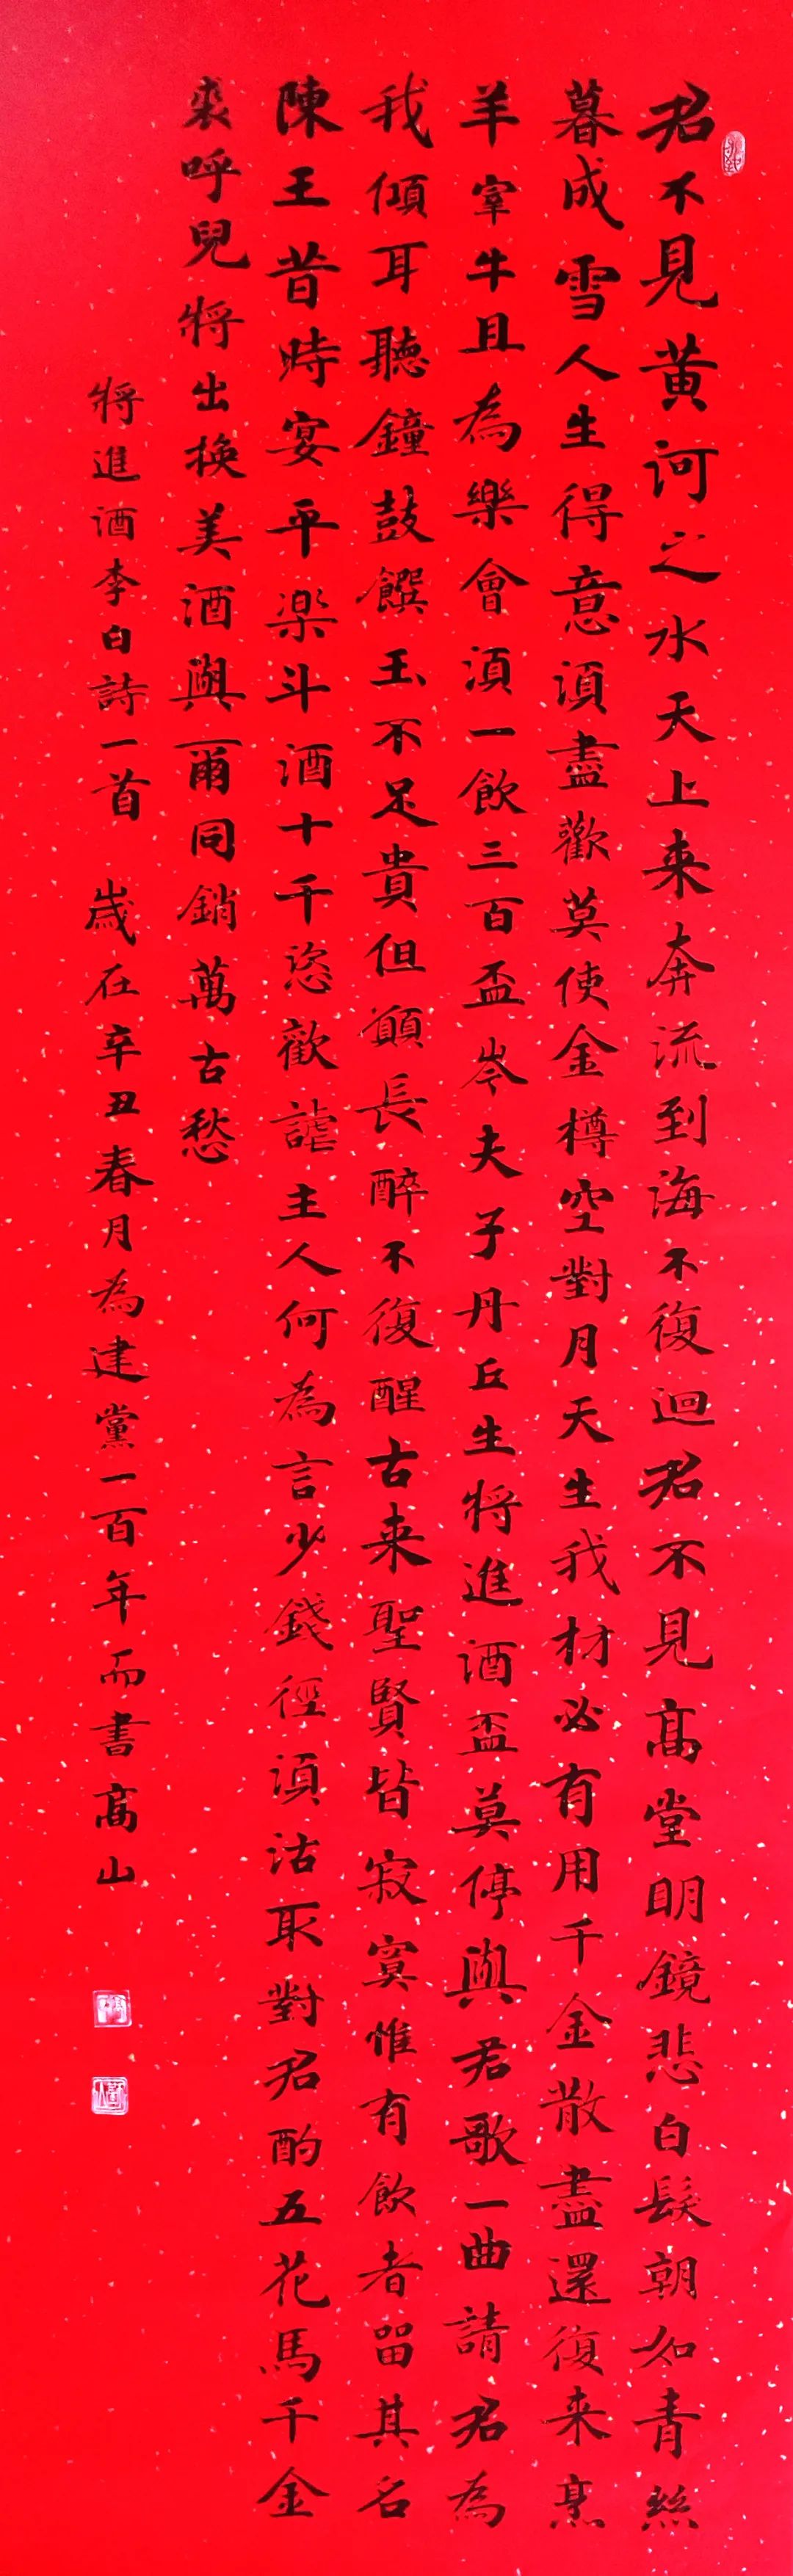 君不見黄河之水天上来奔流到海不復迴君不見髙堂明鏡悲白髮朝如青絲
暮成雪人生得意須盡歡莫使金樽空對月天生我材必有用千金散盡還復来烹
羊宰牛且為樂會須一飲三百盃岑夫子丹丘生将進酒盃莫停與君歌一曲請君為
我傾耳聽鐘鼓饌玉不足貴但願長醉不復醒古来聖賢皆寂寞惟有飲者留其名
陳王昔時宴平楽斗酒十千恣歡謔主人何為言少錢徑須沽取對君酌五花馬千金
裘呼兒將出換美酒與爾同銷萬古愁
將進酒李白詩一首 歲在辛丑春月為建黨一百年而書髙山